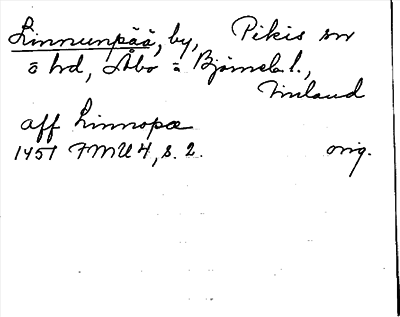 Linnunpää, by, Pikis sn
o hd, Åbo o Björneb. l.,
Finland
aff Linnopæ
1451 FMU 4, s. 2. orig.